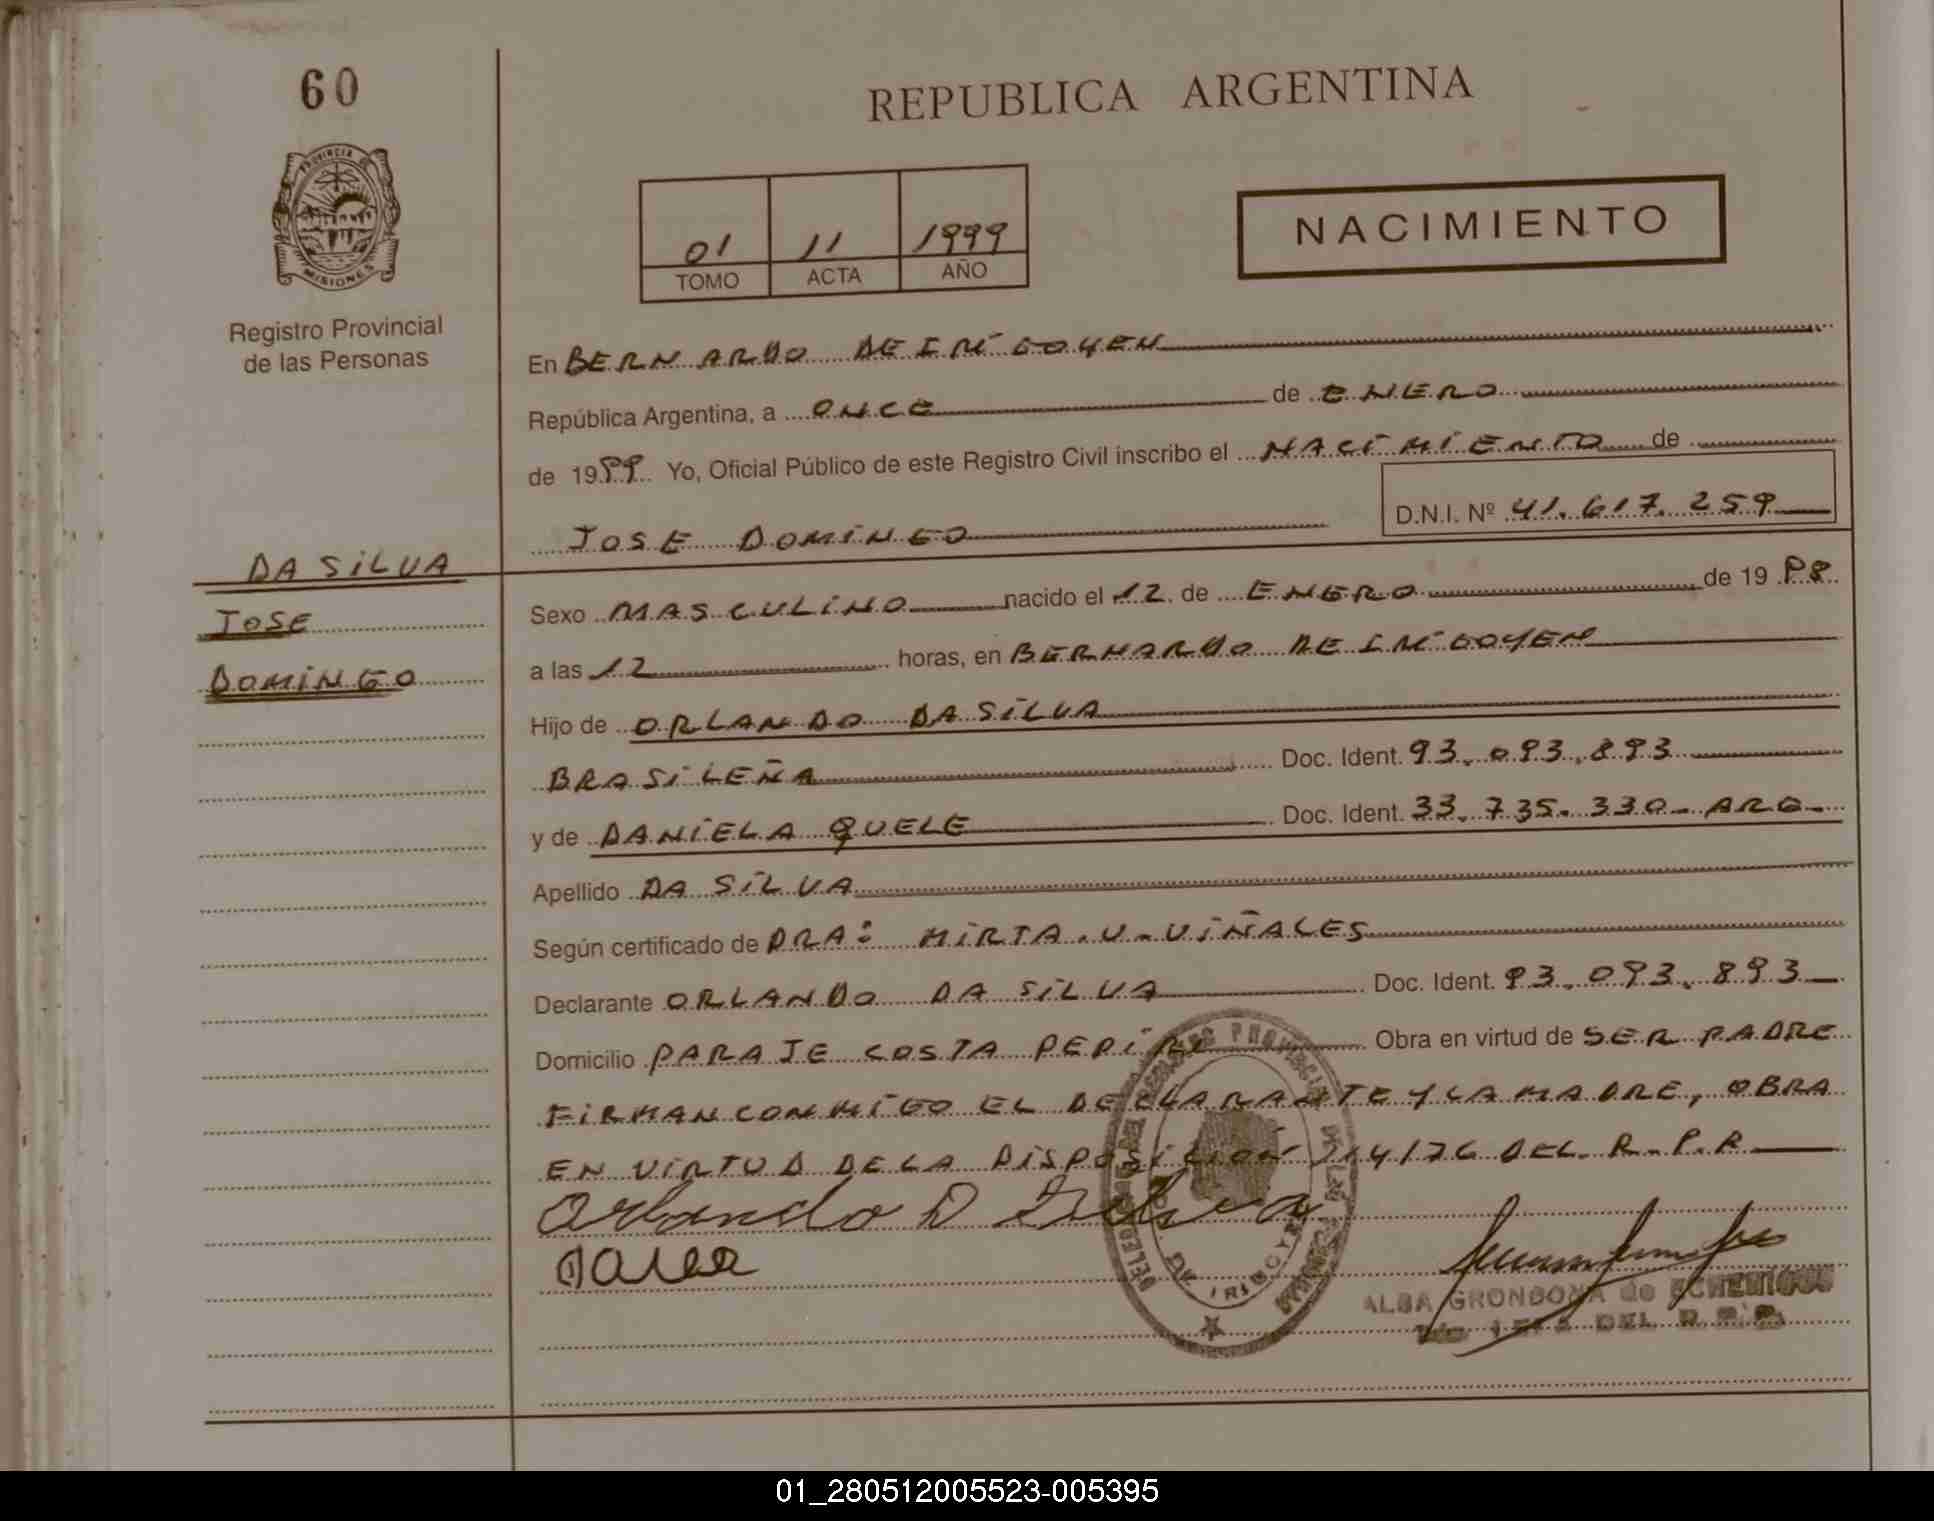 60
REPUBLICA ARGENTINA
PROVINCIA DE
MISIONES
Registro Provincial
de las Personas
01 11 1999
TOMO ACTA AÑO
NACIMIENTO
En BERNARDO DE IRIGOYEN
República Argentina, a ONCE de ENERO
de 1999 Yo, Oficial Público de este Registro Civil inscribo el NACIMIENTO de
D.N.I. Nº 41.617.259
JOSE DOMINGO
DA SILVA
JOSE
DOMINGO
Sexo MASCULINO nacido el 12 de ENERO de 1998
a las 12 horas, en BERNARDO DE IRIGOYEN
Hijo de ORLANDO DA SILVA
BRASILEÑA Doc. Ident. 93.093.893
y de DANIELA QUELE Doc. Ident. 33.735.330 - ARG.-
Apellido DA SILVA
Según certificado de DRA: MIRTA.V.VIÑALES
Declarante ORLANDO DA SILVA Doc. Ident. 93.093.893
Domicilio PARAJE COSTA PEPIRI Obra en virtud de SER PADRE
FIRMAN CONMIGO EL DECLARANTE Y LA MADRE, OBRA
EN VIRTUD DE LA DISPOSICION 14/76 DEL R.P.P.
Orlando D Silva
ALBA GRONDONA de ECHENIQUE
DEL R.P.P.
DE IRIGOYEN
01_280512005523-005395